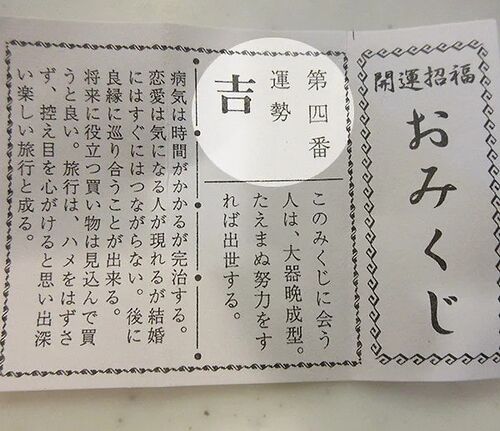 開運招福
おみくじ
第四番
運勢
吉
このみくじに会う
人は、大器晩成型。
たえまぬ努力をす
れば出世する。
病気は時間がかかるが完治する。
恋愛は気になる人が現れるが結婚
にはすぐにはつながらない。後に
良縁に巡り合うことが出来る。
将来に役立つ買い物は見込んで買
うと良い。旅行は、ハメをはずさ
ず、控え目を心がけると思い出深
い楽しい旅行と成る。